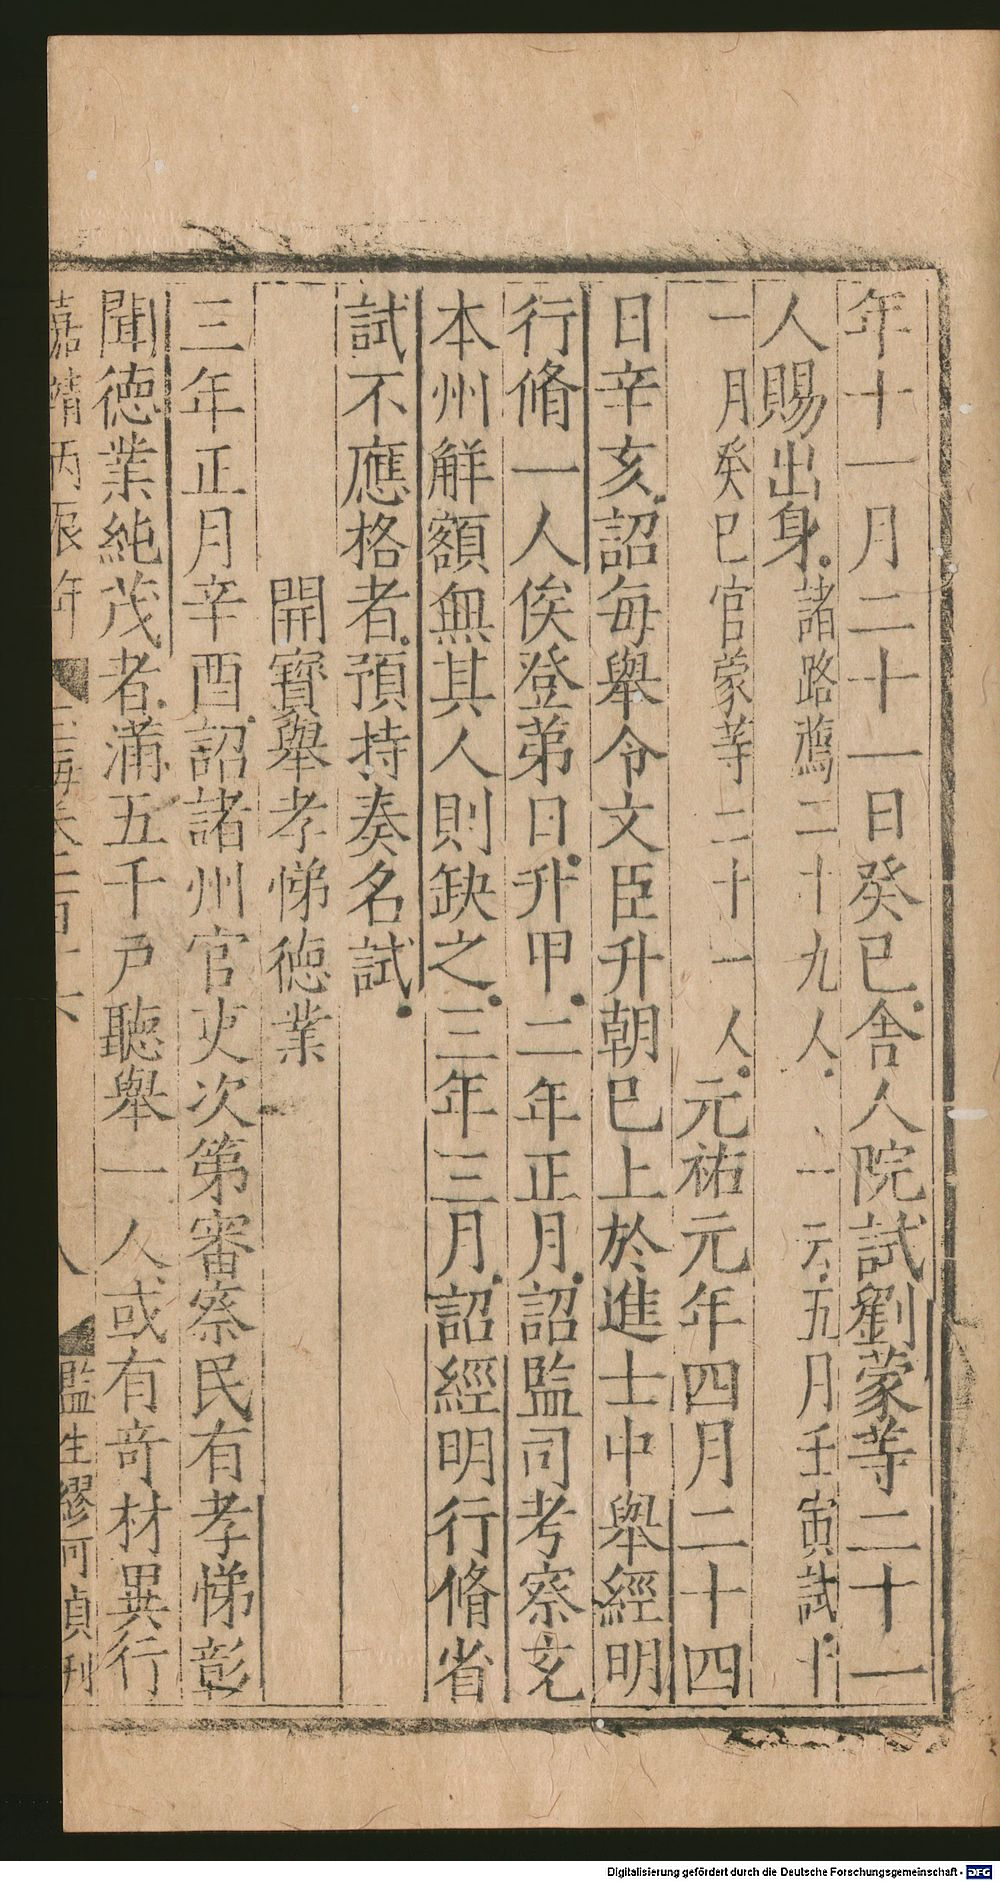 年十一月二十一日癸巳舍人院試劉蒙等二十一
人賜出身諸路薦二十九人一云五月壬寅試十
一月癸巳官蒙等二十一人元祐元年四月二十四
日辛亥詔每舉令文臣升朝巳上於進士中舉經明
行脩一人俟登第日升甲二年正月詔監司考察充
本州解額無其人則缺之三年三月詔經明行脩省
試不應格者預持奏名試
開寶舉孝悌德業
三年正月辛酉詔諸州官吏次第審察民有孝悌彰
聞德業純茂者滿五千戶聽舉一人或有竒材異行
嘉靖丙辰年 玉海卷一百十六 八 監生繆可貞刊
Digitalisierung gefördert durch die Deutsche Forschungsgemeinschaft - DFG